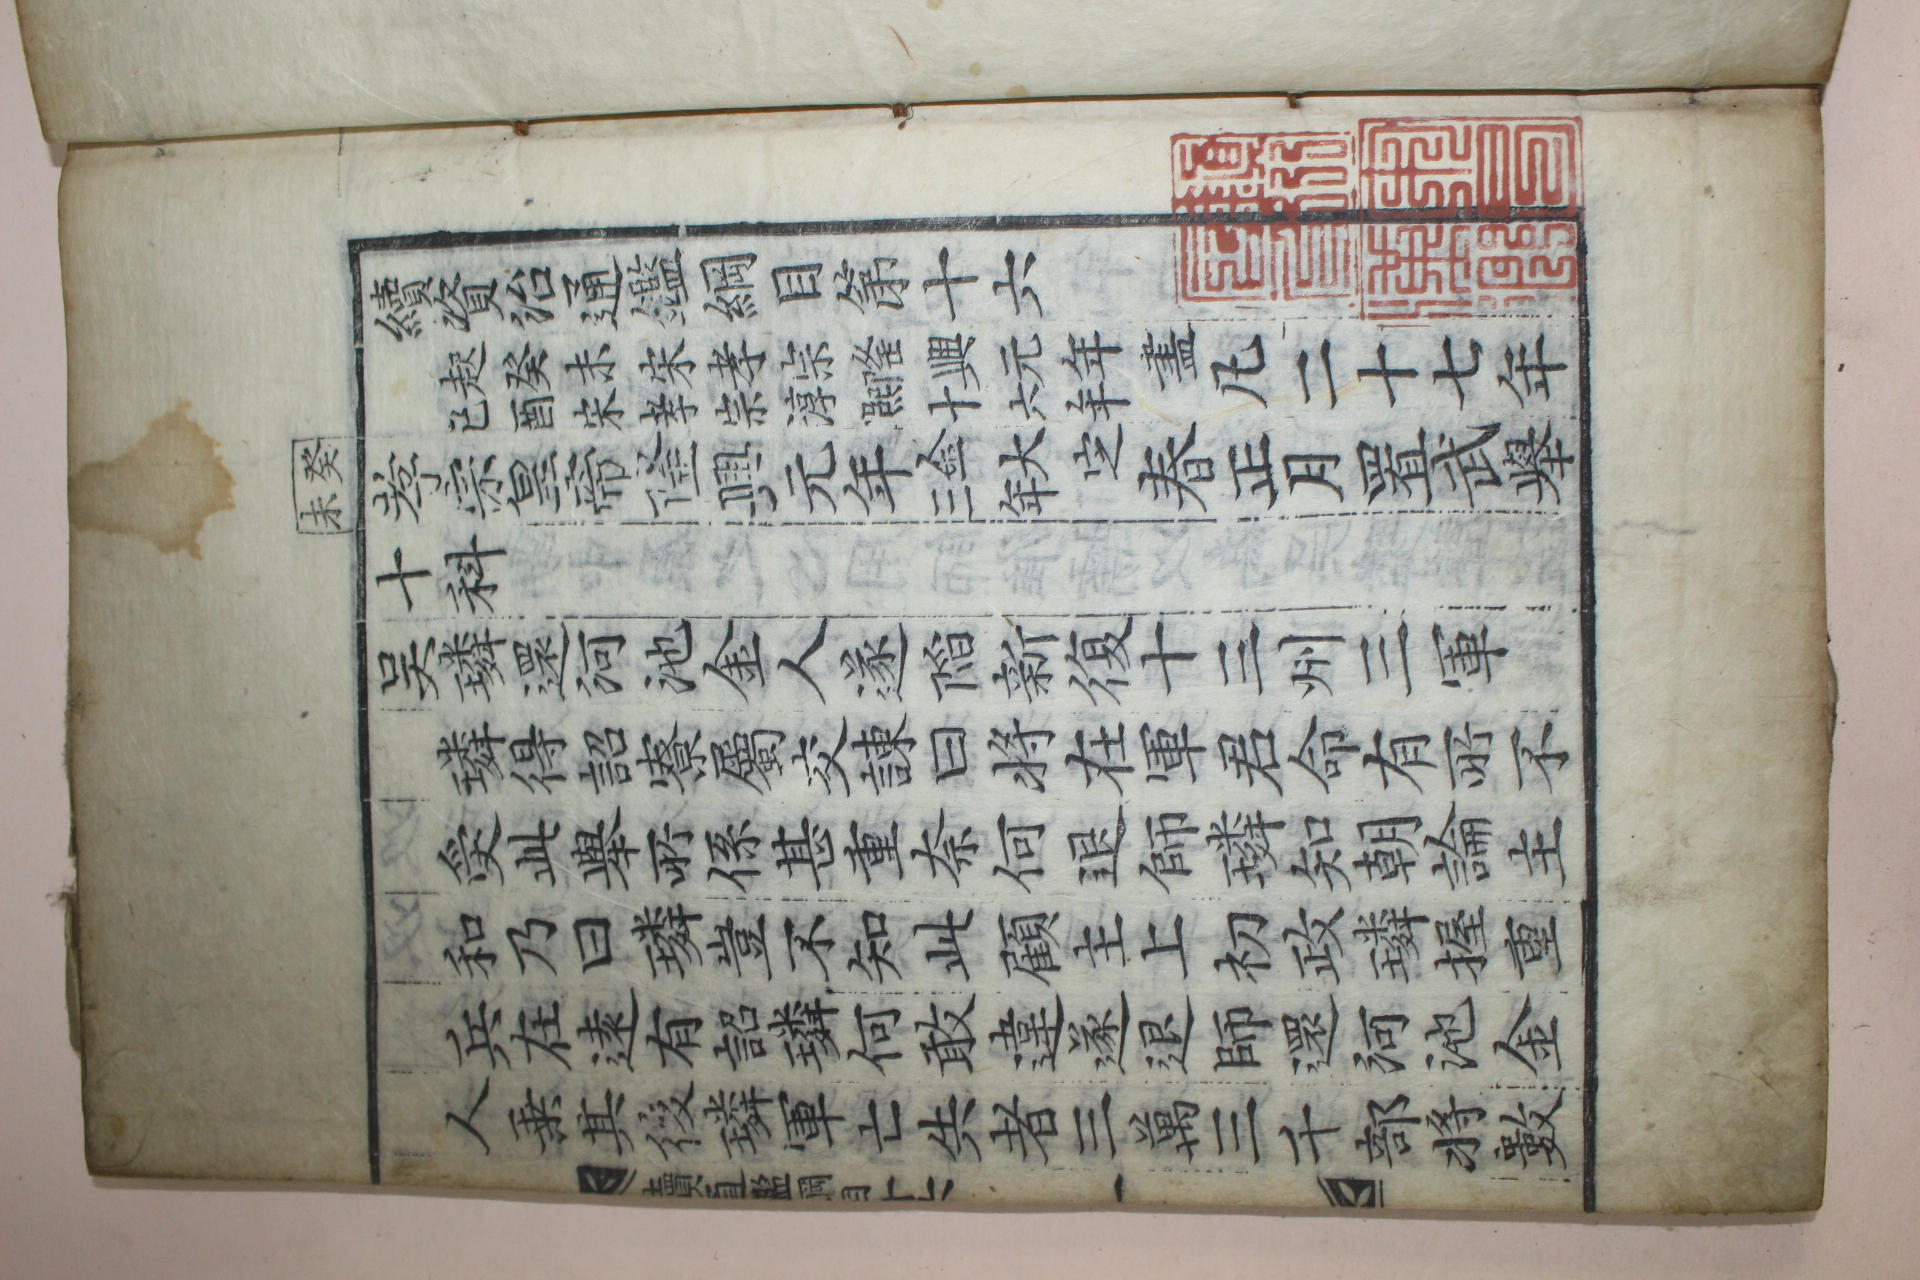 續資治通鑑綱目第十六
起癸未宋孝宗隆興元年盡
己酉宋孝宗淳熙十六年
凡二十七年
癸未
孝宗皇帝隆興元年金大定三年春正月置武擧
十科
吳璘還河池金人遂陷新復十三州三軍
璘得詔寮屬交諫曰將在軍君命有所不
受此擧所係甚重柰何退師璘知朝論主
和乃曰璘豈不知此顧主上初政璘握重
兵在遠有詔璘何敢違遂退師還河池金
人乘其後璘軍亡失者三萬三千部將數
續通鑑綱目十六